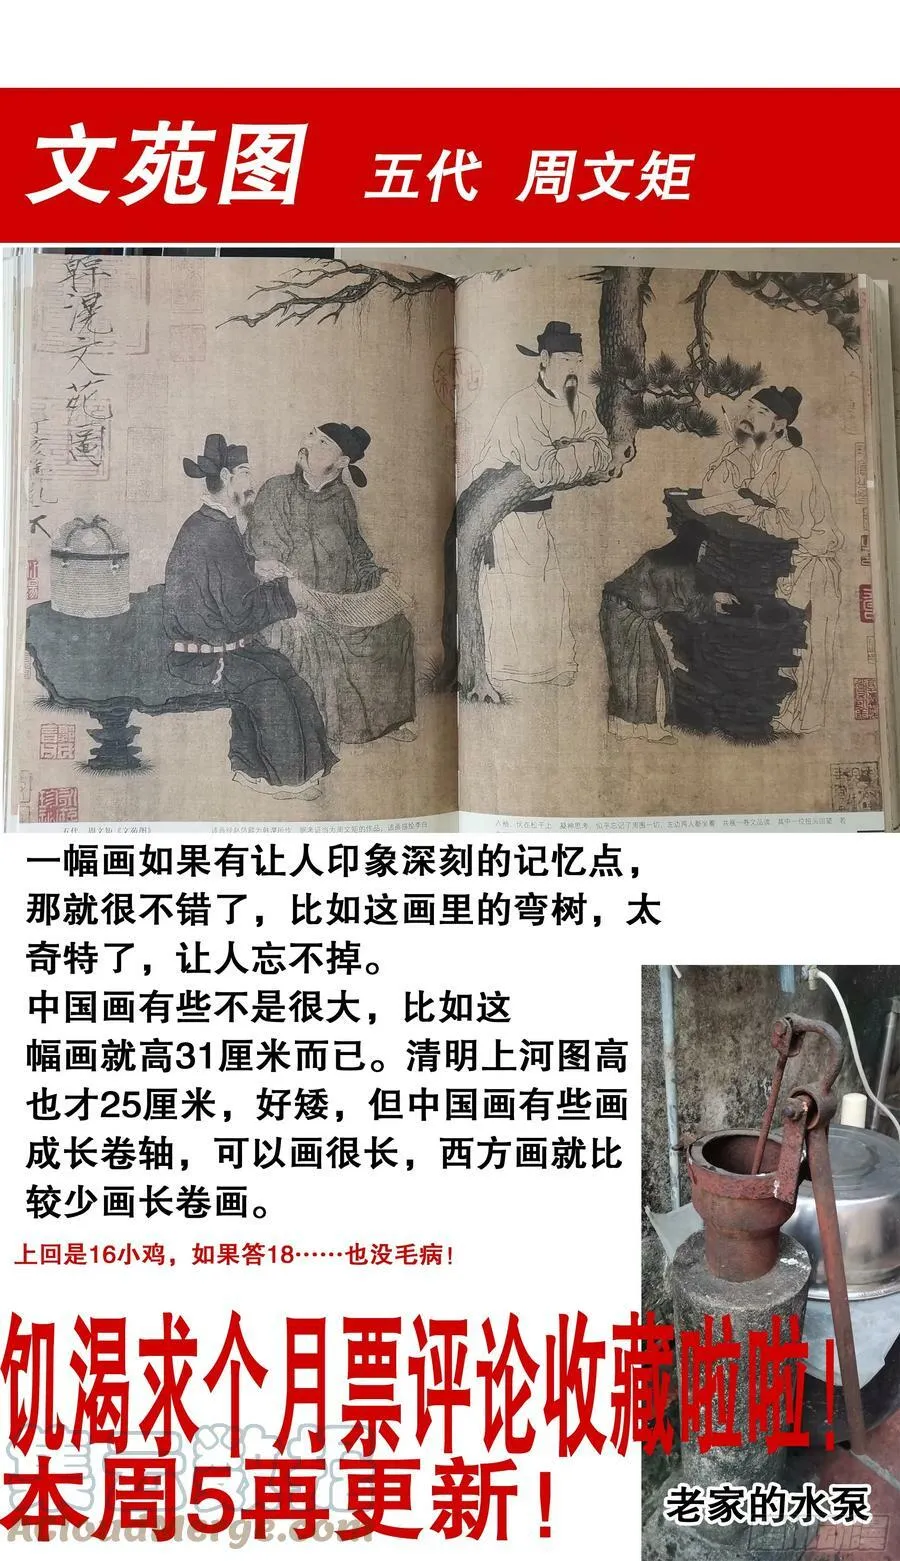 文苑图 五代 周文矩
韩滉文苑图
丁亥
五代 周文矩《文苑图》
一幅画如果有让人印象深刻的记忆点，
那就很不错了，比如这画里的弯树，太
奇特了，让人忘不掉。
中国画有些不是很大，比如这
幅画就高31厘米而已。清明上河图高
也才25厘米，好矮，但中国画有些画
成长卷轴，可以画很长，西方画就比
较少画长卷画。
上回是16小鸡，如果答18……也没毛病！
饥渴求个月票评论收藏啦啦！
本周5再更新！
老家的水泵